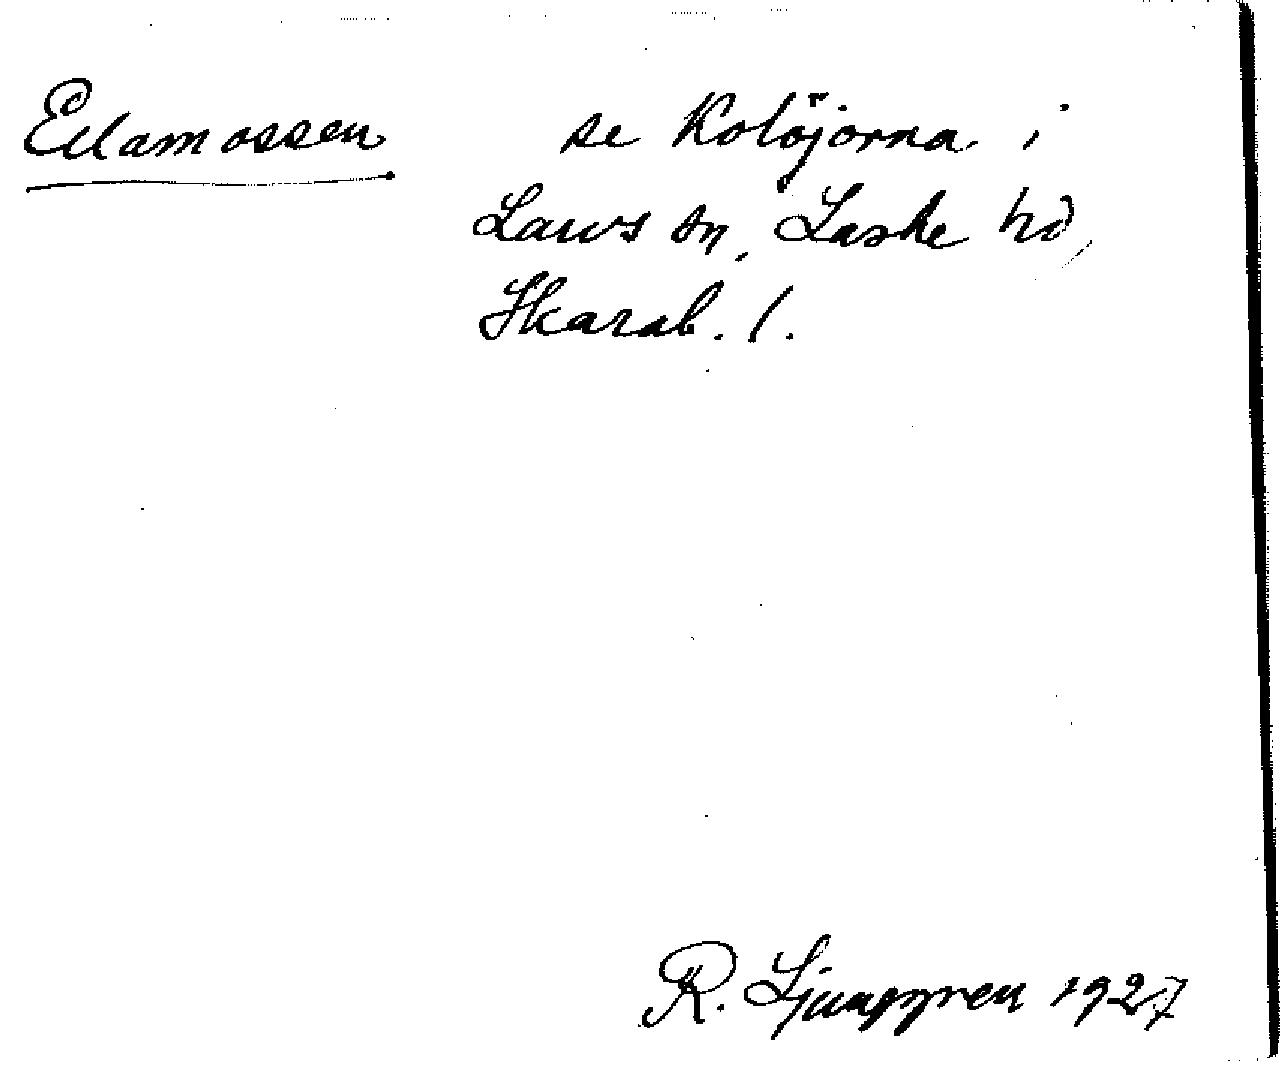 Edamossen se Kolöjorna i
Lavvs sn, Laske hd,
Skarab. l.
R. Ljunggren 1927